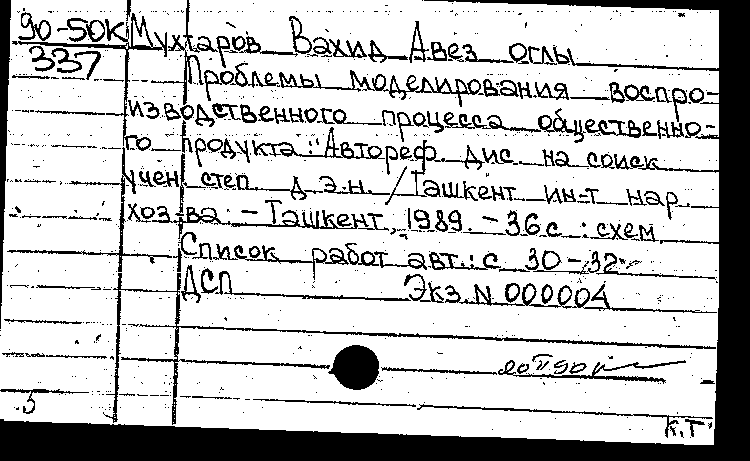 90-50К Мухтаров Вахид Авез оглы
337 Проблемы моделирования воспро-
изводственного процесса общественно-
го продукта: Автореф. дис. на соиск
учен степ. д.э.н. / Ташкент ин-т нар.
хоз-ва. - Ташкент, 1989. - 36с : схем.
Список работ авт.: с 30-32.
ДСП Экз. N 000004
К.Т